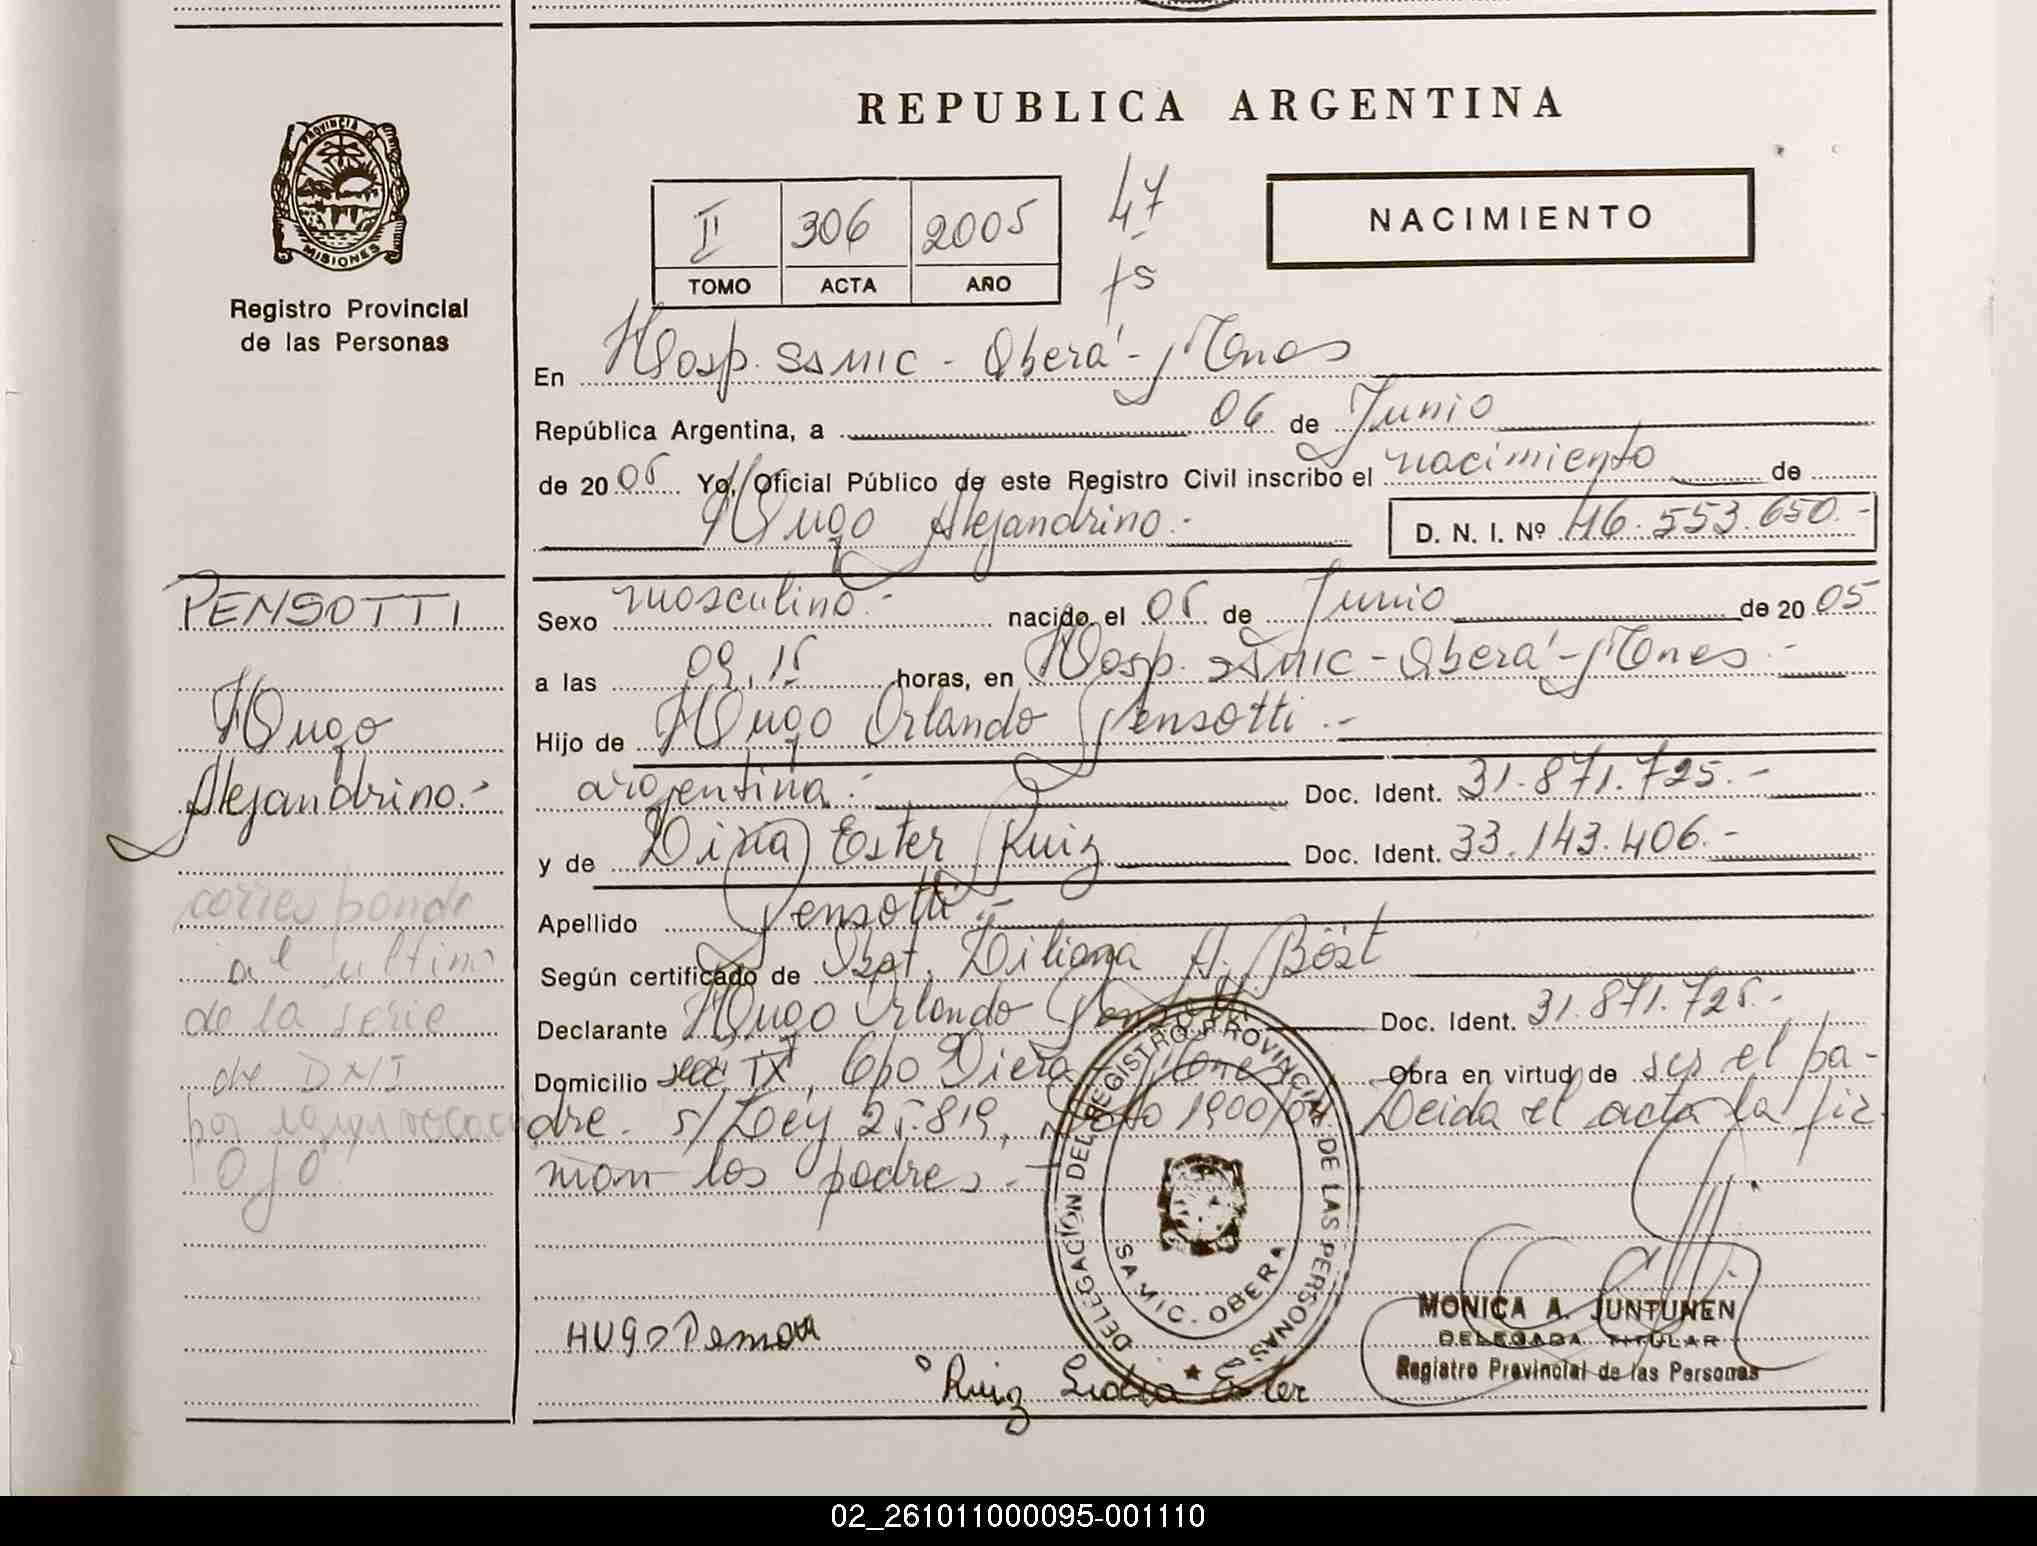 REPUBLICA ARGENTINA
PROVINCIA DE
MISIONES
Registro Provincial
de las Personas
II 306 2005
TOMO ACTA AÑO
47
fs
NACIMIENTO
En Hosp. SAMIC - Oberá - Mnes
República Argentina, a 06 de Junio
de 20 05 Yo, Oficial Público de este Registro Civil inscribo el nacimiento de
Hugo Alejandrino.- D. N. I. Nº 46.553.650.-
PENSOTTI
Hugo
Alejandrino.-
corresponde
al ultimo
de la serie
de DNI
por equivocacion
Ojo
Sexo masculino.- nacido el 05 de Junio de 20 05
a las 09,15 horas, en Hosp. SAMIC - Oberá - Mnes.-
Hijo de Hugo Orlando Pensotti.-
argentina.- Doc. Ident. 31.871.725.-
y de Ester Ruiz Doc. Ident. 33.143.406.-
Apellido Pensotti.-
Según certificado de Obst. Liliana A. Böst
Declarante Hugo Orlando Pensotti Doc. Ident. 31.871.725.-
Domicilio secc IX, Cpo Viera - Mnes Obra en virtud de ser el pa-
dre. s/Ley 25.819, Dcto 1900/04 Leida el acta la fir
man los padres.-
DELEGACIÓN DEL REGISTRO PROVINCIAL DE LAS PERSONAS
SAMIC. OBERA
HUGO
Ruiz Lidia Ester
MONICA A. JUNTUNEN
DELEGADA TITULAR
Registro Provincial de las Personas
02_261011000095-001110